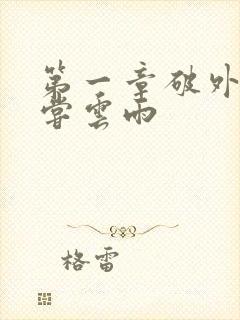 第一章破外
嘗雲雨
格雷